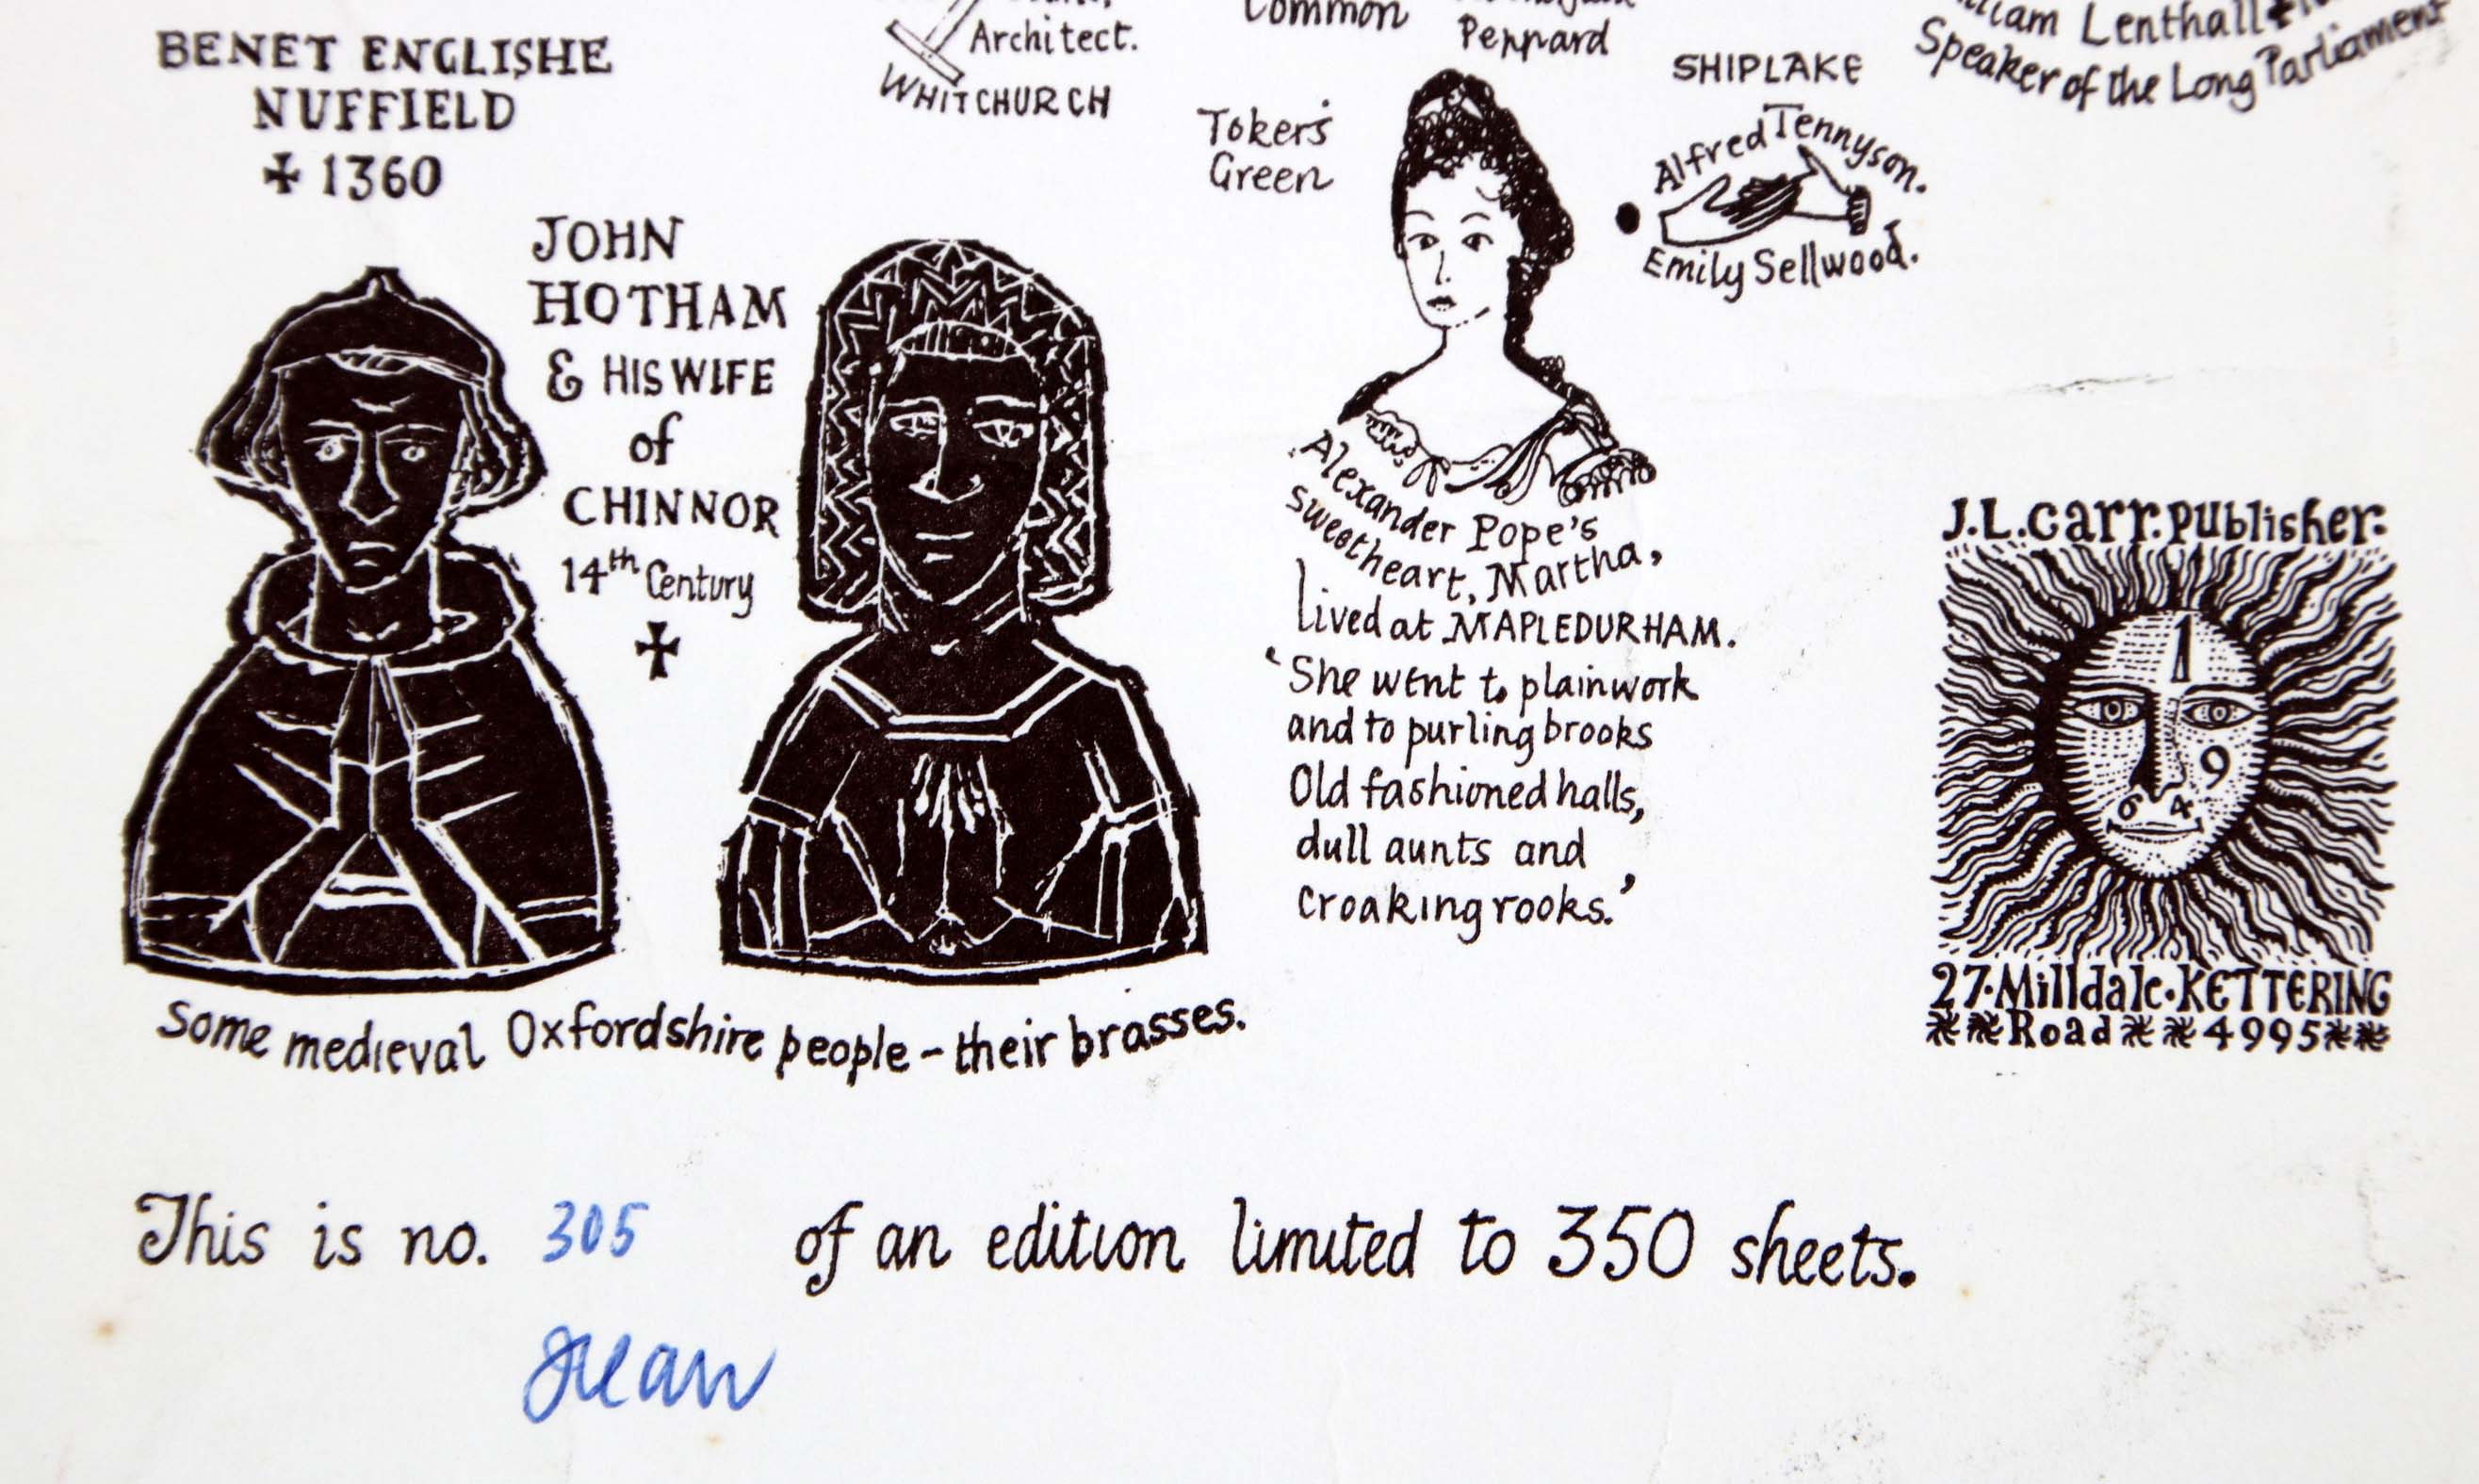 BENET ENGLISHE
NUFFIELD
✠ 1360
JOHN
HOTHAM
& HIS WIFE
of
CHINNOR
14th Century
✠
Some medieval Oxfordshire people – their brasses.
Architect.
WHITCHURCH
Common
Peppard
Toker's
Green
SHIPLAKE
Alfred Tennyson.
Emily Sellwood.
Lenthall
Speaker of the Long Parliament
Alexander Pope's
sweetheart, Martha,
lived at MAPLEDURHAM.
'She went to plainwork
and to purling brooks
Old fashioned halls,
dull aunts and
croaking rooks.'
J.L.Carr.Publisher:
1
9
6 4
27·Milldale·KETTERING
Road 4995
This is no. 305 of an edition limited to 350 sheets.